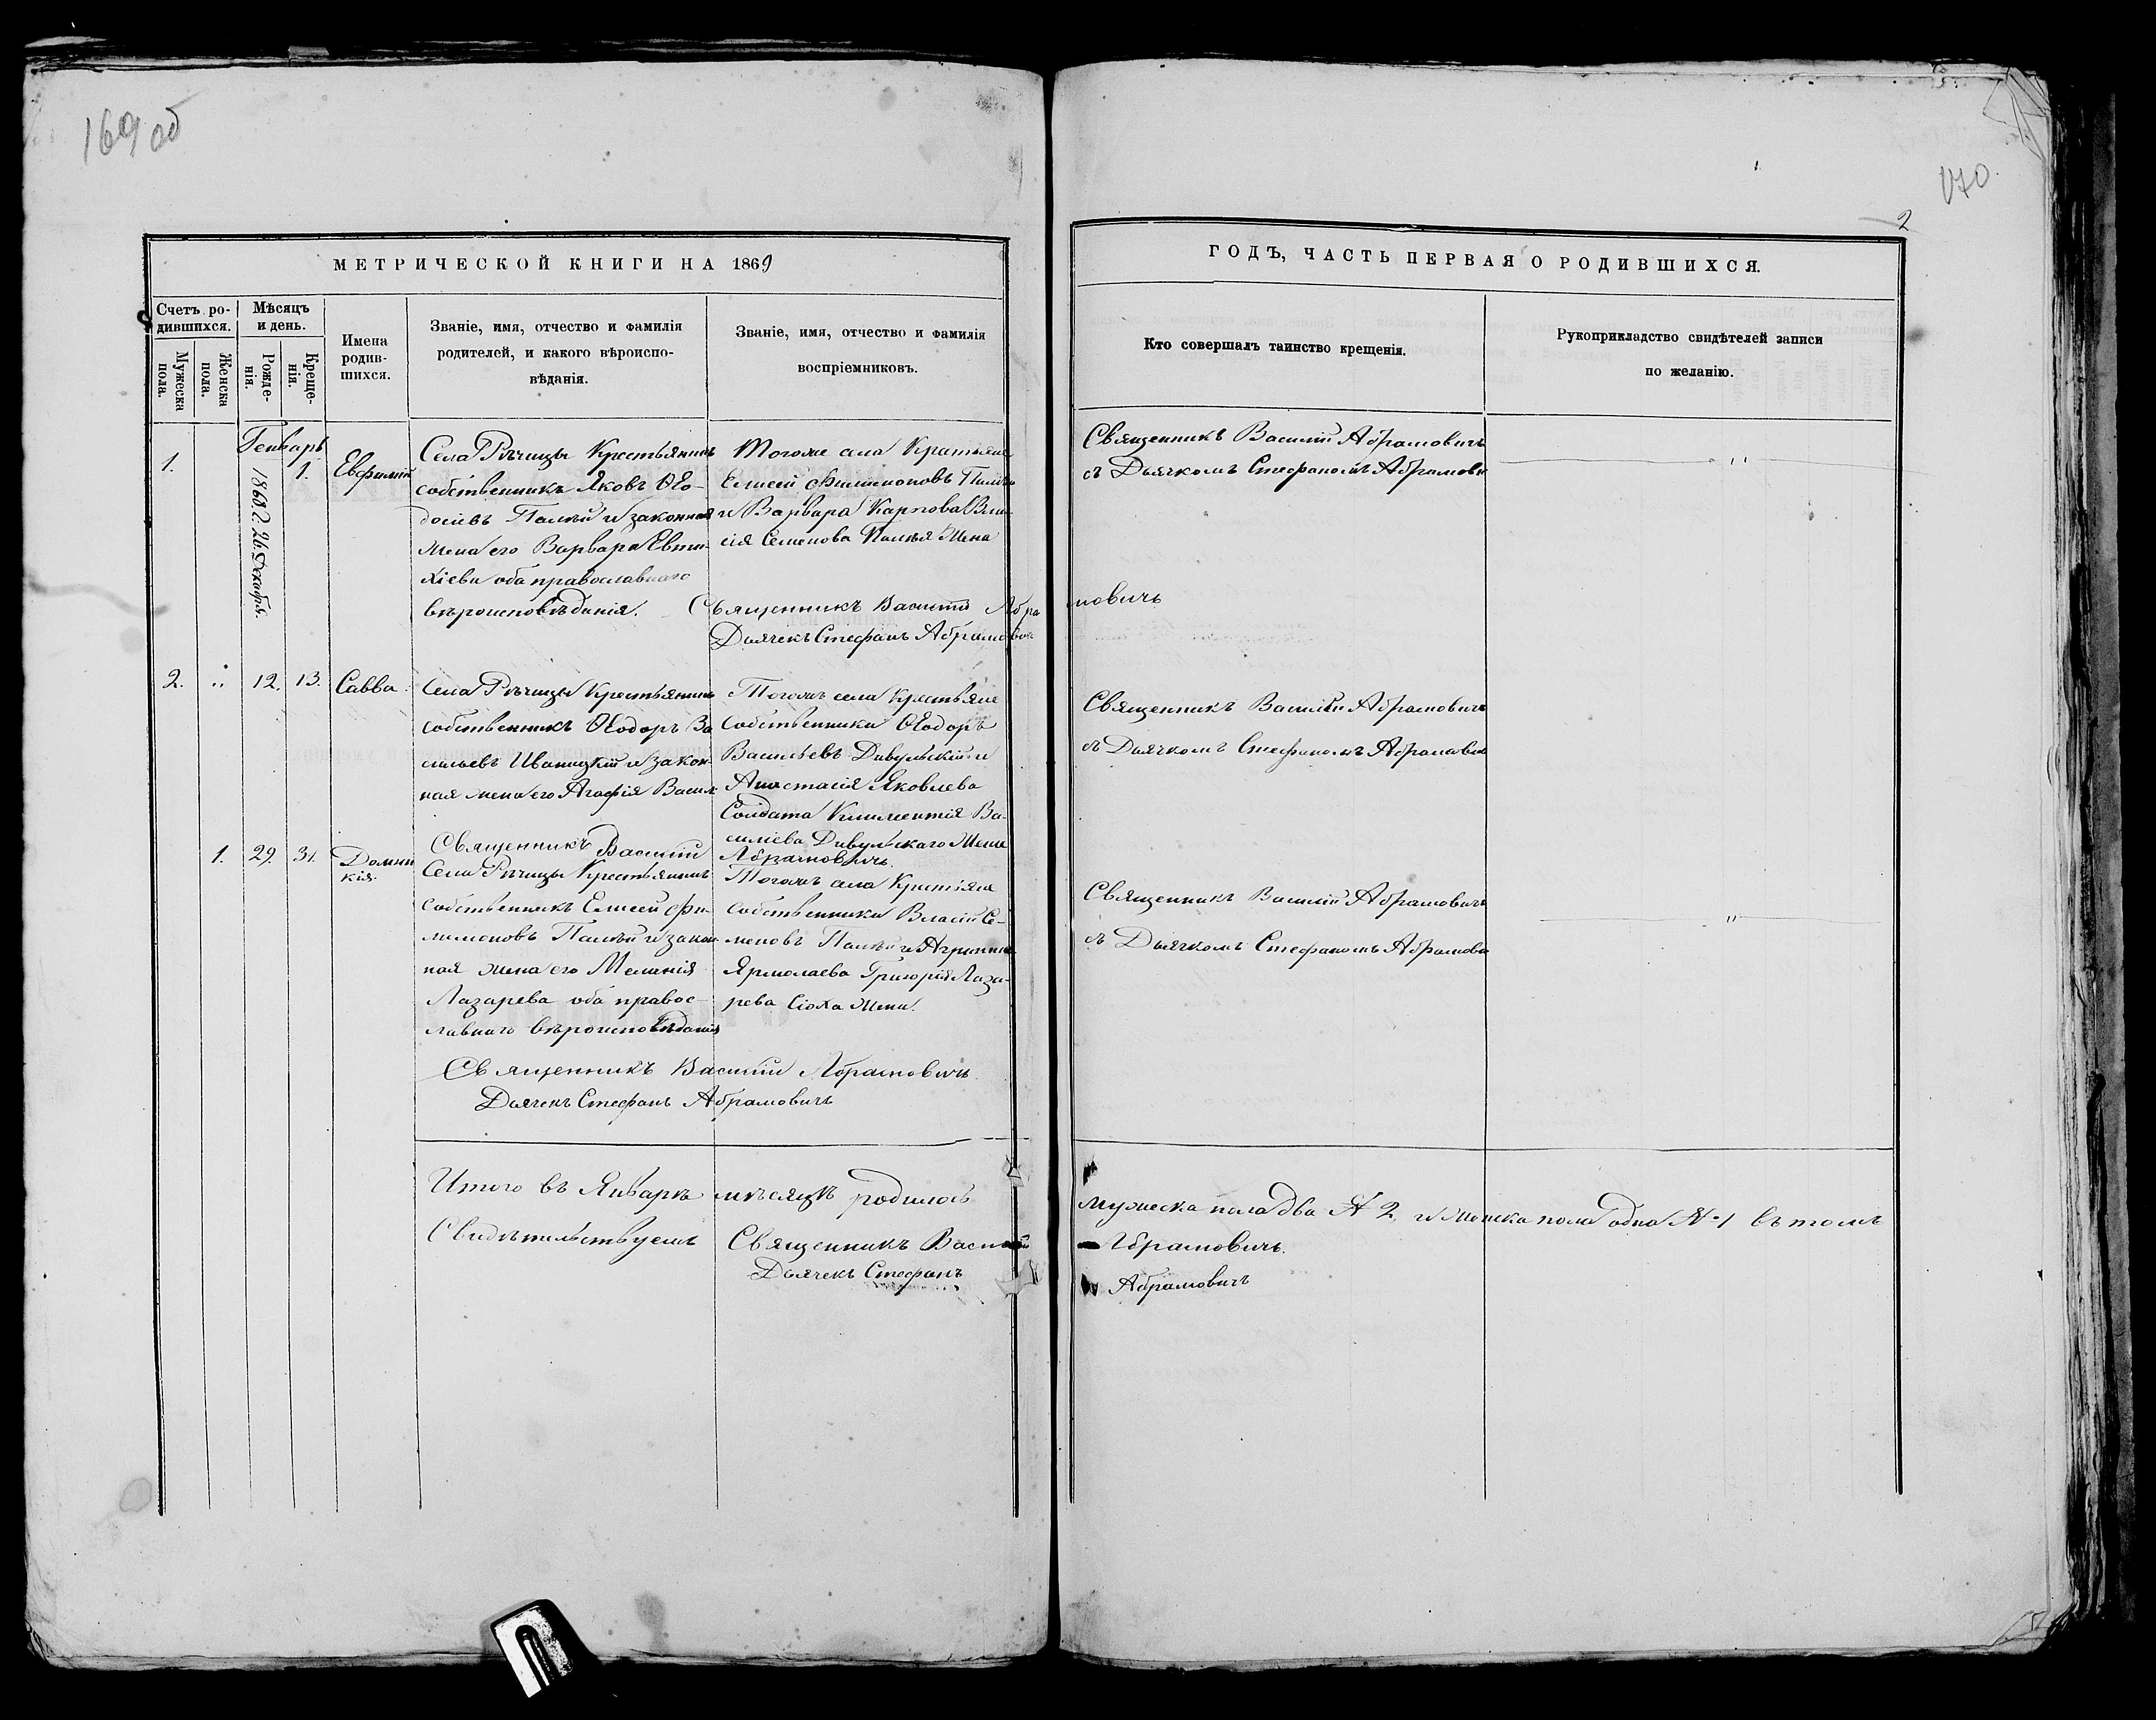 169 об
170.
2
МЕТРИЧЕСКОЙ КНИГИ НА 1869
ГОДЪ, ЧАСТЬ ПЕРВАЯ О РОДИВШИХСЯ.
Счетъ ро-
дившихся.
Мужеска
пола.
Женска
пола.
Мѣсяцъ
и день.
Рожде-
нія.
Креще-
нія.
Имена
родив-
шихся.
Званіе, имя, отчество и фамилія
родителей, и какого вѣроиспо-
вѣданія.
Званіе, имя, отчество и фамилія
воспріемниковъ.
Кто совершалъ таинство крещенія.
Рукоприкладство свидѣтелей записи
по желанію.
Генварь
1.
1868 г. 26. Декабря.
1.
Евфимій
Села Рѣчицы Крестьянинъ
собственникъ Яковъ Ѳео-
досіевъ Палѣй и законная
жена его Варвара Евти-
хіева оба православнаго
вѣроисповѣданія.
Тогоже села Крестьяне
Елисей Филимоновъ Палѣй
и Варвара Карпова Вла-
сія Семенова Палѣя жена
Священникъ Василій Абрамовичъ
съ Дьячкомъ Стефаномъ Абрамови
Священникъ Василій Абрамовичъ
Дьячекъ Стефанъ Абрамович
2.
12.
13.
Савва.
Села Рѣчицы Крестьянинъ
собственникъ Ѳеодоръ Ва
сильевъ Иваницкій и закон-
ная жена его Агафія Васил
Тогожъ села Крестьяне
собственники Ѳеодоръ
Васильевъ Дивульскій и
Анастасія Яковлева
Солдата Климентія Ва-
силіева Дивульскаго Жена
Священникъ Василій Абрамовичъ
съ Дьячкомъ Стефаномъ Абрамовы
Священникъ Василій
Абрамовичъ.
1.
29.
31.
Домни
кія.
Села Рѣчицы Крестьянинъ
собственникъ Елисей Фи-
лимоновъ Палѣй и закон
ная жена его Меланія
Лазарева оба правос-
лавнаго вѣроисповѣданія
Тогожъ села Крестьяне
собственники Власій Се-
меновъ Палѣй и Агрипина
Ярмолаева Григорія Лаза-
рева Сіоха жена.
Священникъ Василій Абрамовичъ
съ Дьячкомъ Стефаномъ Абрамова
Священникъ Василій Абрамовичъ.
Дьячекъ Стефанъ Абрамовичъ
Итого въ Январѣ мѣсяцѣ родилось мужеска пола два № 2, и женска пола одна № 1 въ томъ
Свидѣтельствуемъ Священникъ Василій Абрамовичъ.
Дьячекъ Стефанъ Абрамовичъ